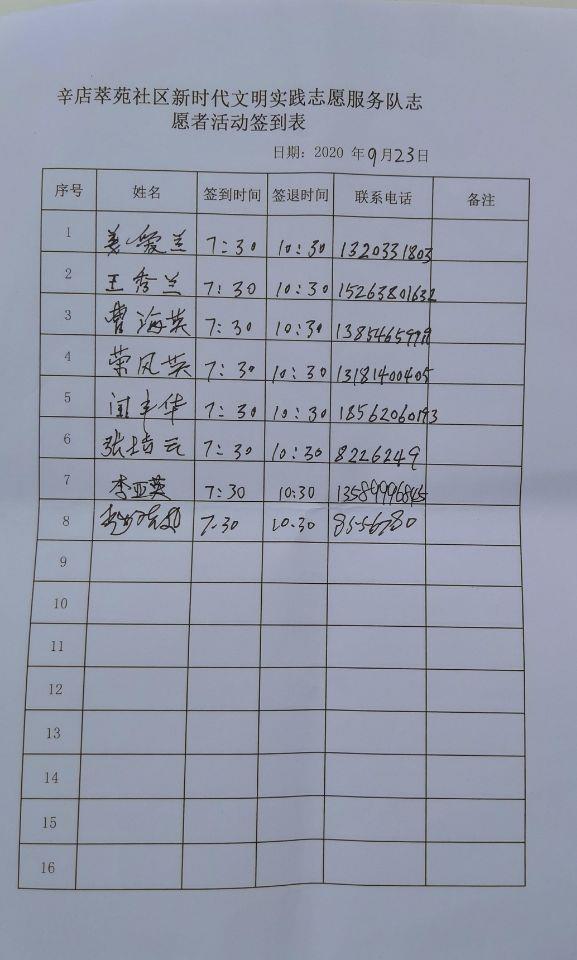 辛店萃苑社区新时代文明实践志愿服务队志
愿者活动签到表
日期：2020 年9月23日
序号 姓名 签到时间 签退时间 联系电话 备注
1 姜爱兰 7:30 10:30 1320331803
2 王秀兰 7:30 10:30 15263801632
3 曹海英 7:30 10:30
4 荣凤英 7:30 10:30 13181400405
5 7:30 10:30 18562060193
6 张培云 7:30 10:30 8226249
7 李亚英 7:30 10:30 13589996845
8 7.30 10.30
9
10
11
12
13
14
15
16